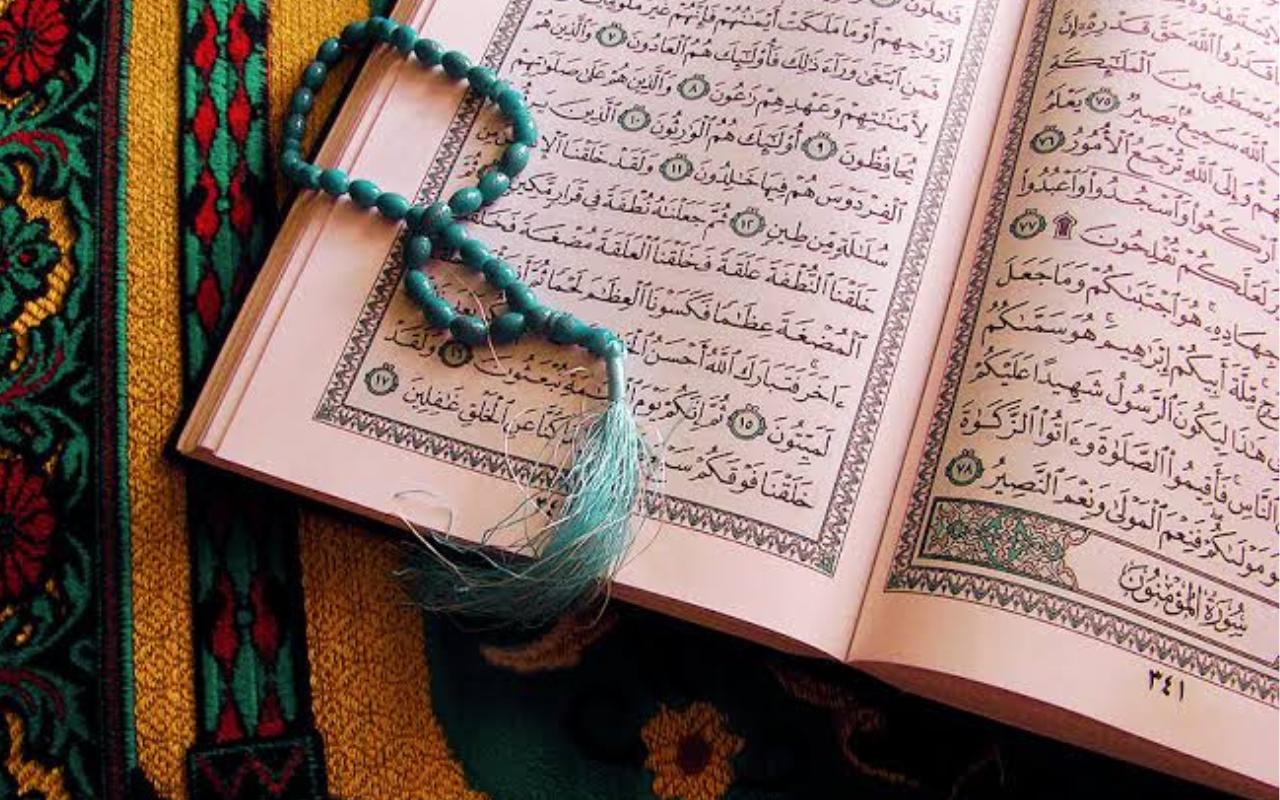 قَدَرُوا۟ ٱللَّهَ حَقَّ قَدْرِهِۦٓ إِنَّ
يَصْطَفِى مِنَ ٱلْمَلَـٰٓئِكَةِ
ٱللَّهَ سَمِيعٌۢ بَصِيرٌ ٧٥ يَعْلَمُ
وَإِلَى ٱللَّهِ تُرْجَعُ ٱلْأُمُورُ ٧٦
ٱرْكَعُوا۟ وَٱسْجُدُوا۟ وَٱعْبُدُوا۟
لَعَلَّكُمْ تُفْلِحُونَ ۩ ٧٧
جِهَادِهِۦ هُوَ ٱجْتَبَىٰكُمْ وَمَا جَعَلَ
مِّلَّةَ أَبِيكُمْ إِبْرَٰهِيمَ هُوَ سَمَّىٰكُمُ
هَـٰذَا لِيَكُونَ ٱلرَّسُولُ شَهِيدًا عَلَيْكُمْ
ٱلنَّاسِ فَأَقِيمُوا۟ ٱلصَّلَوٰةَ وَءَاتُوا۟ ٱلزَّكَوٰةَ
مَوْلَىٰكُمْ فَنِعْمَ ٱلْمَوْلَىٰ وَنِعْمَ ٱلنَّصِيرُ ٧٨
سُورَةُ المُؤْمِنُونَ
٣٤١
فَـٰعِلُونَ
أَزْوَٰجِهِمْ أَوْ مَا مَلَكَتْ أَيْمَـٰنُهُمْ فَإِنَّهُمْ غَيْرُ مَلُومِينَ
فَمَنِ ٱبْتَغَىٰ وَرَآءَ ذَٰلِكَ فَأُو۟لَـٰٓئِكَ هُمُ ٱلْعَادُونَ ٧ وَٱلَّذِينَ هُمْ
لِأَمَـٰنَـٰتِهِمْ وَعَهْدِهِمْ رَٰعُونَ ٨ وَٱلَّذِينَ هُمْ عَلَىٰ صَلَوَٰتِهِمْ
يُحَافِظُونَ ٩ أُو۟لَـٰٓئِكَ هُمُ ٱلْوَٰرِثُونَ ١٠ ٱلَّذِينَ
ٱلْفِرْدَوْسَ هُمْ فِيهَا خَـٰلِدُونَ ١١ وَلَقَدْ خَلَقْنَا
سُلَـٰلَةٍ مِّن طِينٍ ١٢ ثُمَّ جَعَلْنَـٰهُ نُطْفَةً فِى قَرَارٍ مَّكِينٍ
خَلَقْنَا ٱلنُّطْفَةَ عَلَقَةً فَخَلَقْنَا ٱلْعَلَقَةَ مُضْغَةً
ٱلْمُضْغَةَ عِظَـٰمًا فَكَسَوْنَا ٱلْعِظَـٰمَ لَحْمًا ثُمَّ
ءَاخَرَ فَتَبَارَكَ ٱللَّهُ أَحْسَنُ
لَمَيِّتُونَ ١٥ ثُمَّ إِنَّكُمْ يَوْمَ تُبْعَثُونَ ١٦ وَلَقَدْ
خَلَقْنَا فَوْقَكُمْ كُنَّا عَنِ ٱلْخَلْقِ غَـٰفِلِينَ ١٧